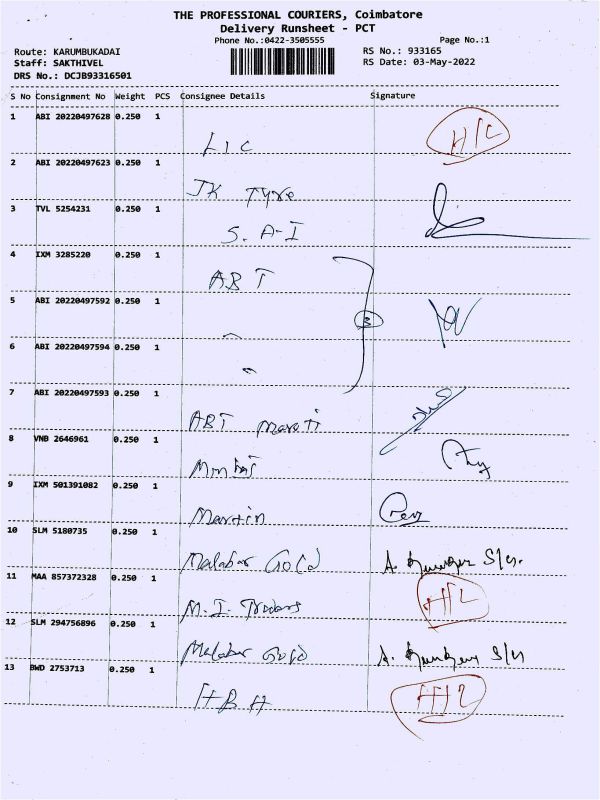 THE PROFESSIONAL COURIERS, Coimbatore
Delivery Runsheet - PCT
Phone No.:0422-3505555 Page No.:1
Route: KARUMBUKADAI RS No.: 933165
Staff: SAKTHIVEL RS Date: 03-May-2022
DRS No.: DCJB93316501
S No Consignment No Weight PCS Consignee Details Signature
1 ABI 20220497628 0.250 1
LIC
2 ABI 20220497623 0.250 1
JK Tyre
3 TVL 5254231 0.250 1
S. A-I
4 IXM 3285220 0.250 1
ABT
5 ABI 20220497592 0.250 1
3
6 ABI 20220497594 0.250 1
7 ABI 20220497593 0.250 1
ABT Maruti
8 VNB 2646961 0.250 1
9 IXM 501391082 0.250 1
Martin
10 SLM 5180735 0.250 1
Malabar Gold
11 MAA 857372328 0.250 1
M. I. Traders
12 SLM 294756896 0.250 1
Malabar Gold
13 BWD 2753713 0.250 1
HBH